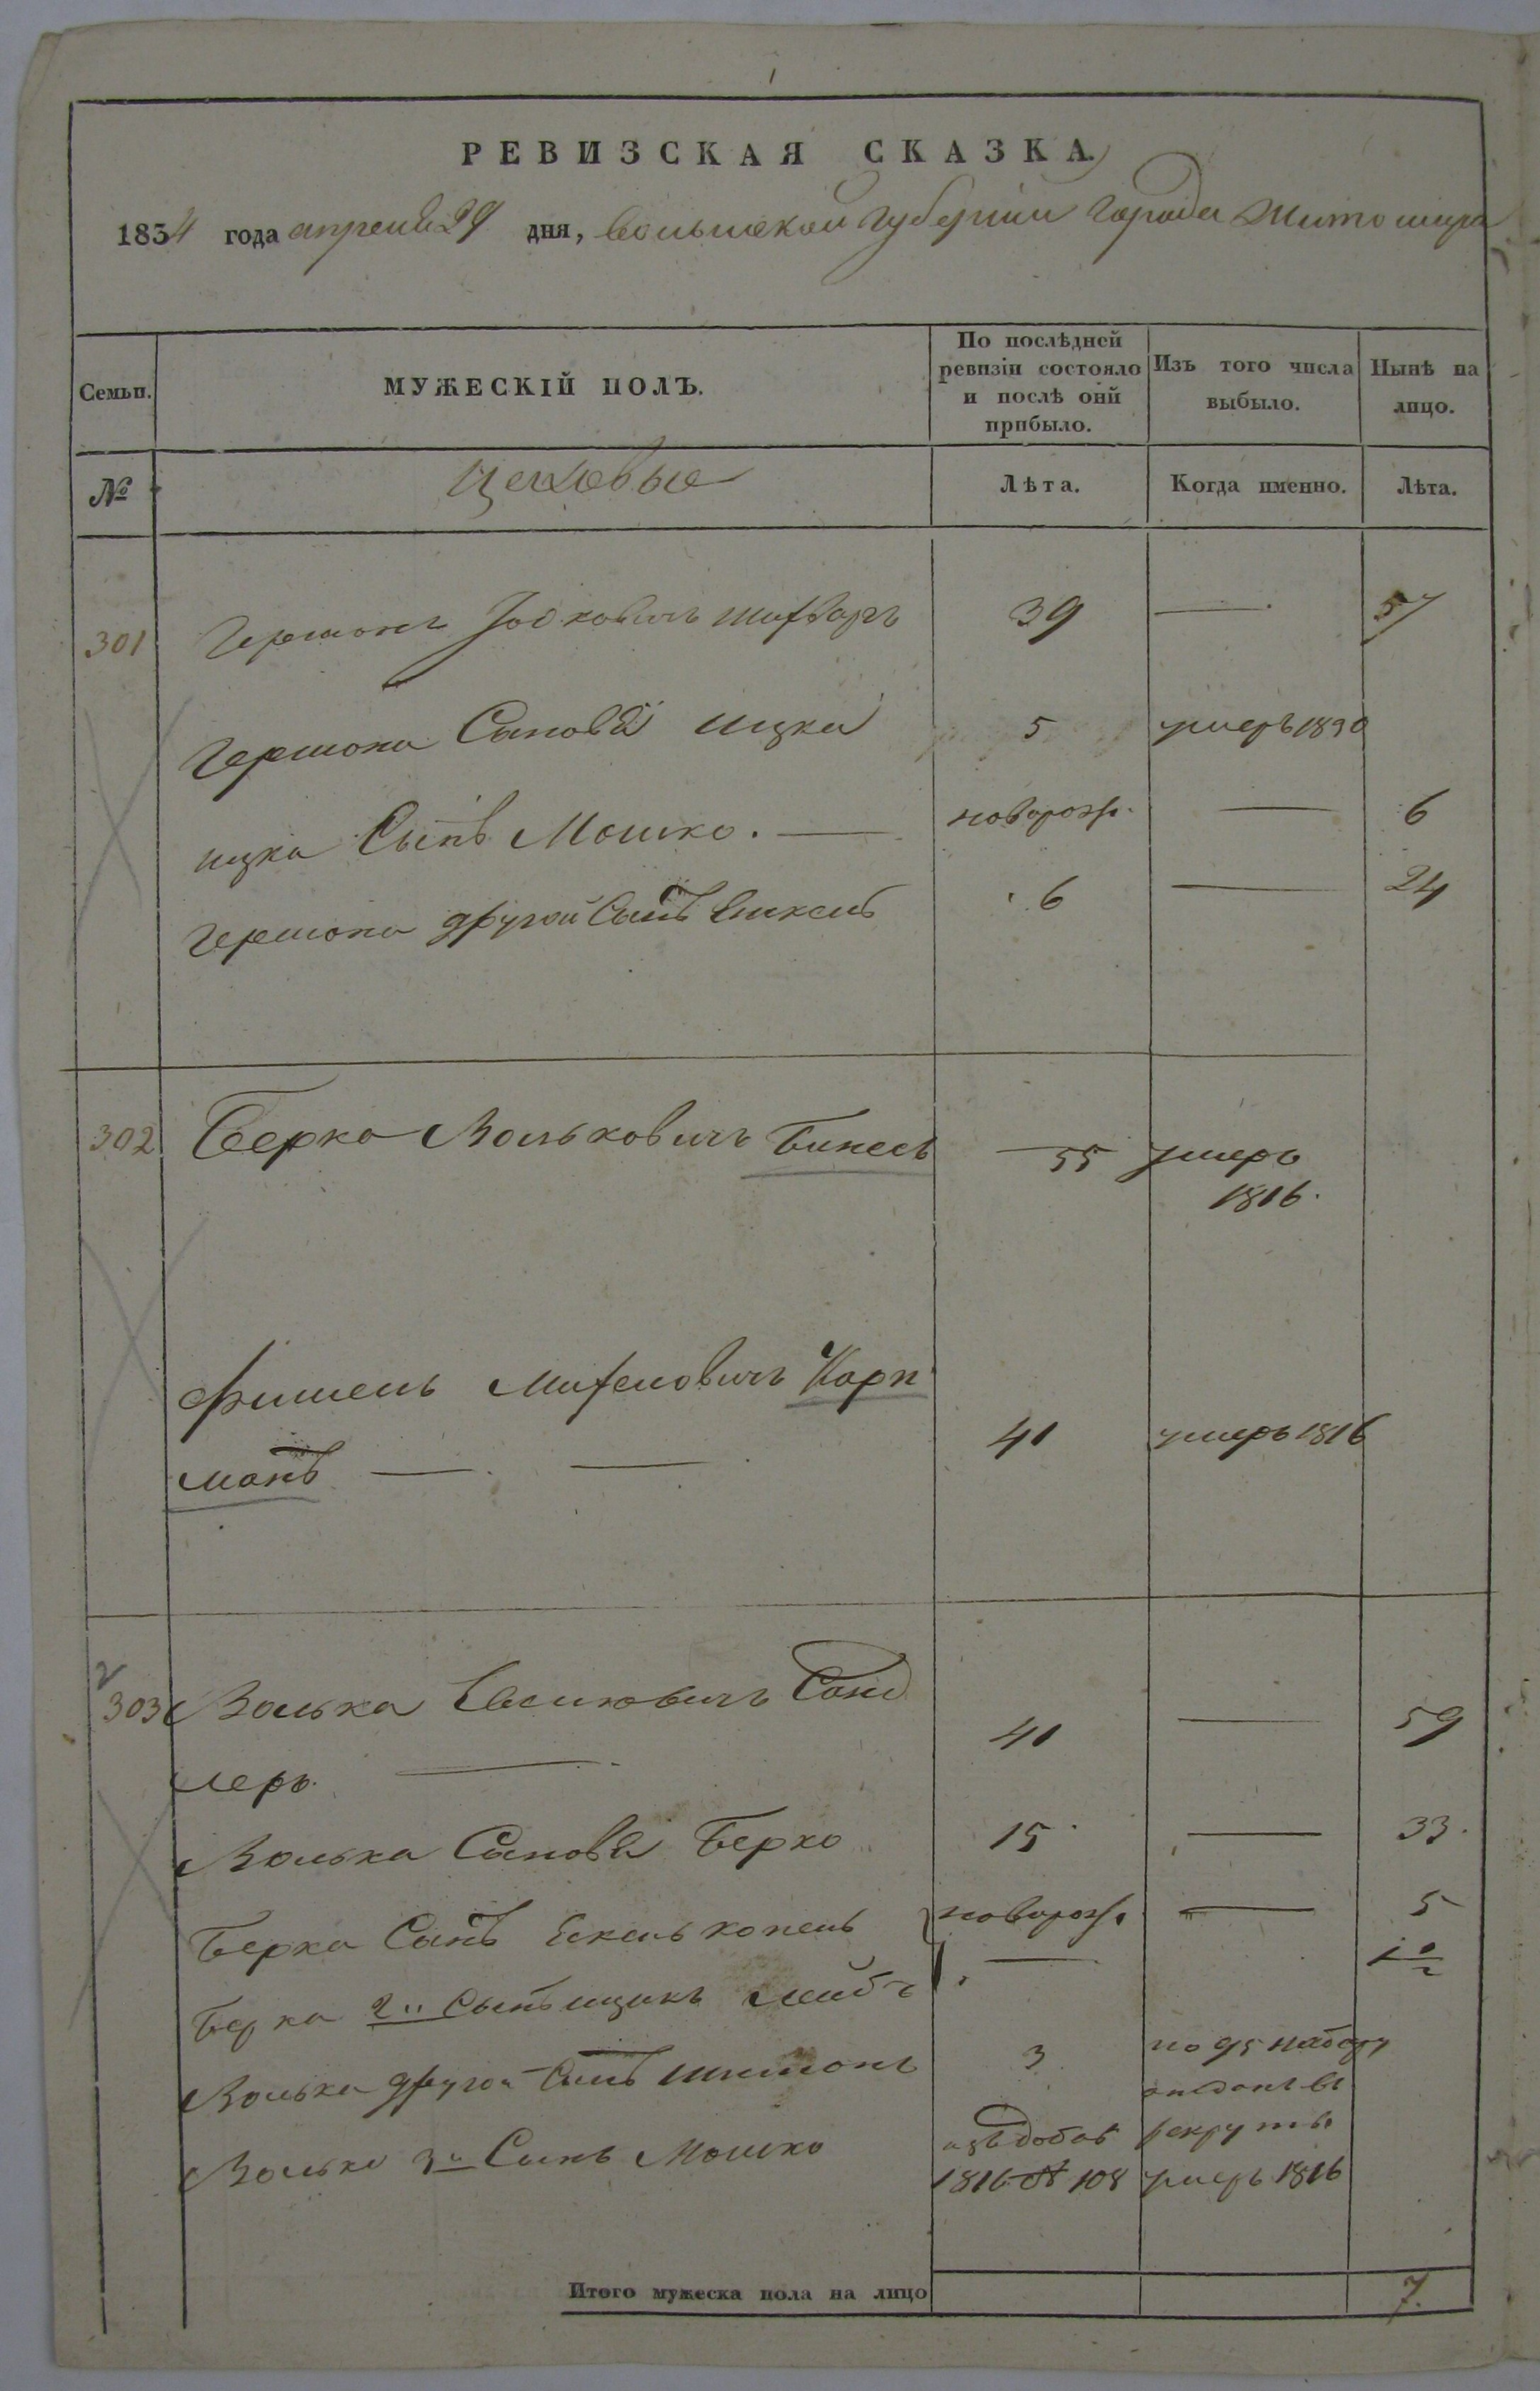 РЕВИЗСКАЯ СКАЗКА.
1834 года апреля 29 дня, Волынской Губернии Города Житомира
Семьи.
МУЖЕСКІЙ ПОЛЪ.
По послѣдней ревизіи состояло и послѣ оной прибыло.
Изъ того числа выбыло.
Нынѣ на лицо.
№
Цеховые
Лѣта.
Когда именно.
Лѣта.
301 Гершонъ Іосковичъ 39 — 57
Гершона Сыновья Ицка 5 умеръ 1830
Ицка Сынъ Мошко. — новорож. — 6
Гершона другой Сынъ 6 — 24
302 Берко Вольковичъ Бинесъ 55 умеръ
1816.
Фишель Михеловичъ Карп
манъ — — 41 умеръ 1816
303 Волька Санд
леръ. — 41 — 59
Волька Сыновья Берко 15 — 33.
Берка Сынъ новорож. — 5
Берка 2й Сынъ Ицикъ Лейбъ — 1/2
Волька другой Сынъ Шимонъ 3 по 95 набору
отданъ въ
рекруты
Волько 3й Сынъ Мошко
1816 № 108 умеръ 1816
Итого мужеска пола на лицо 7.